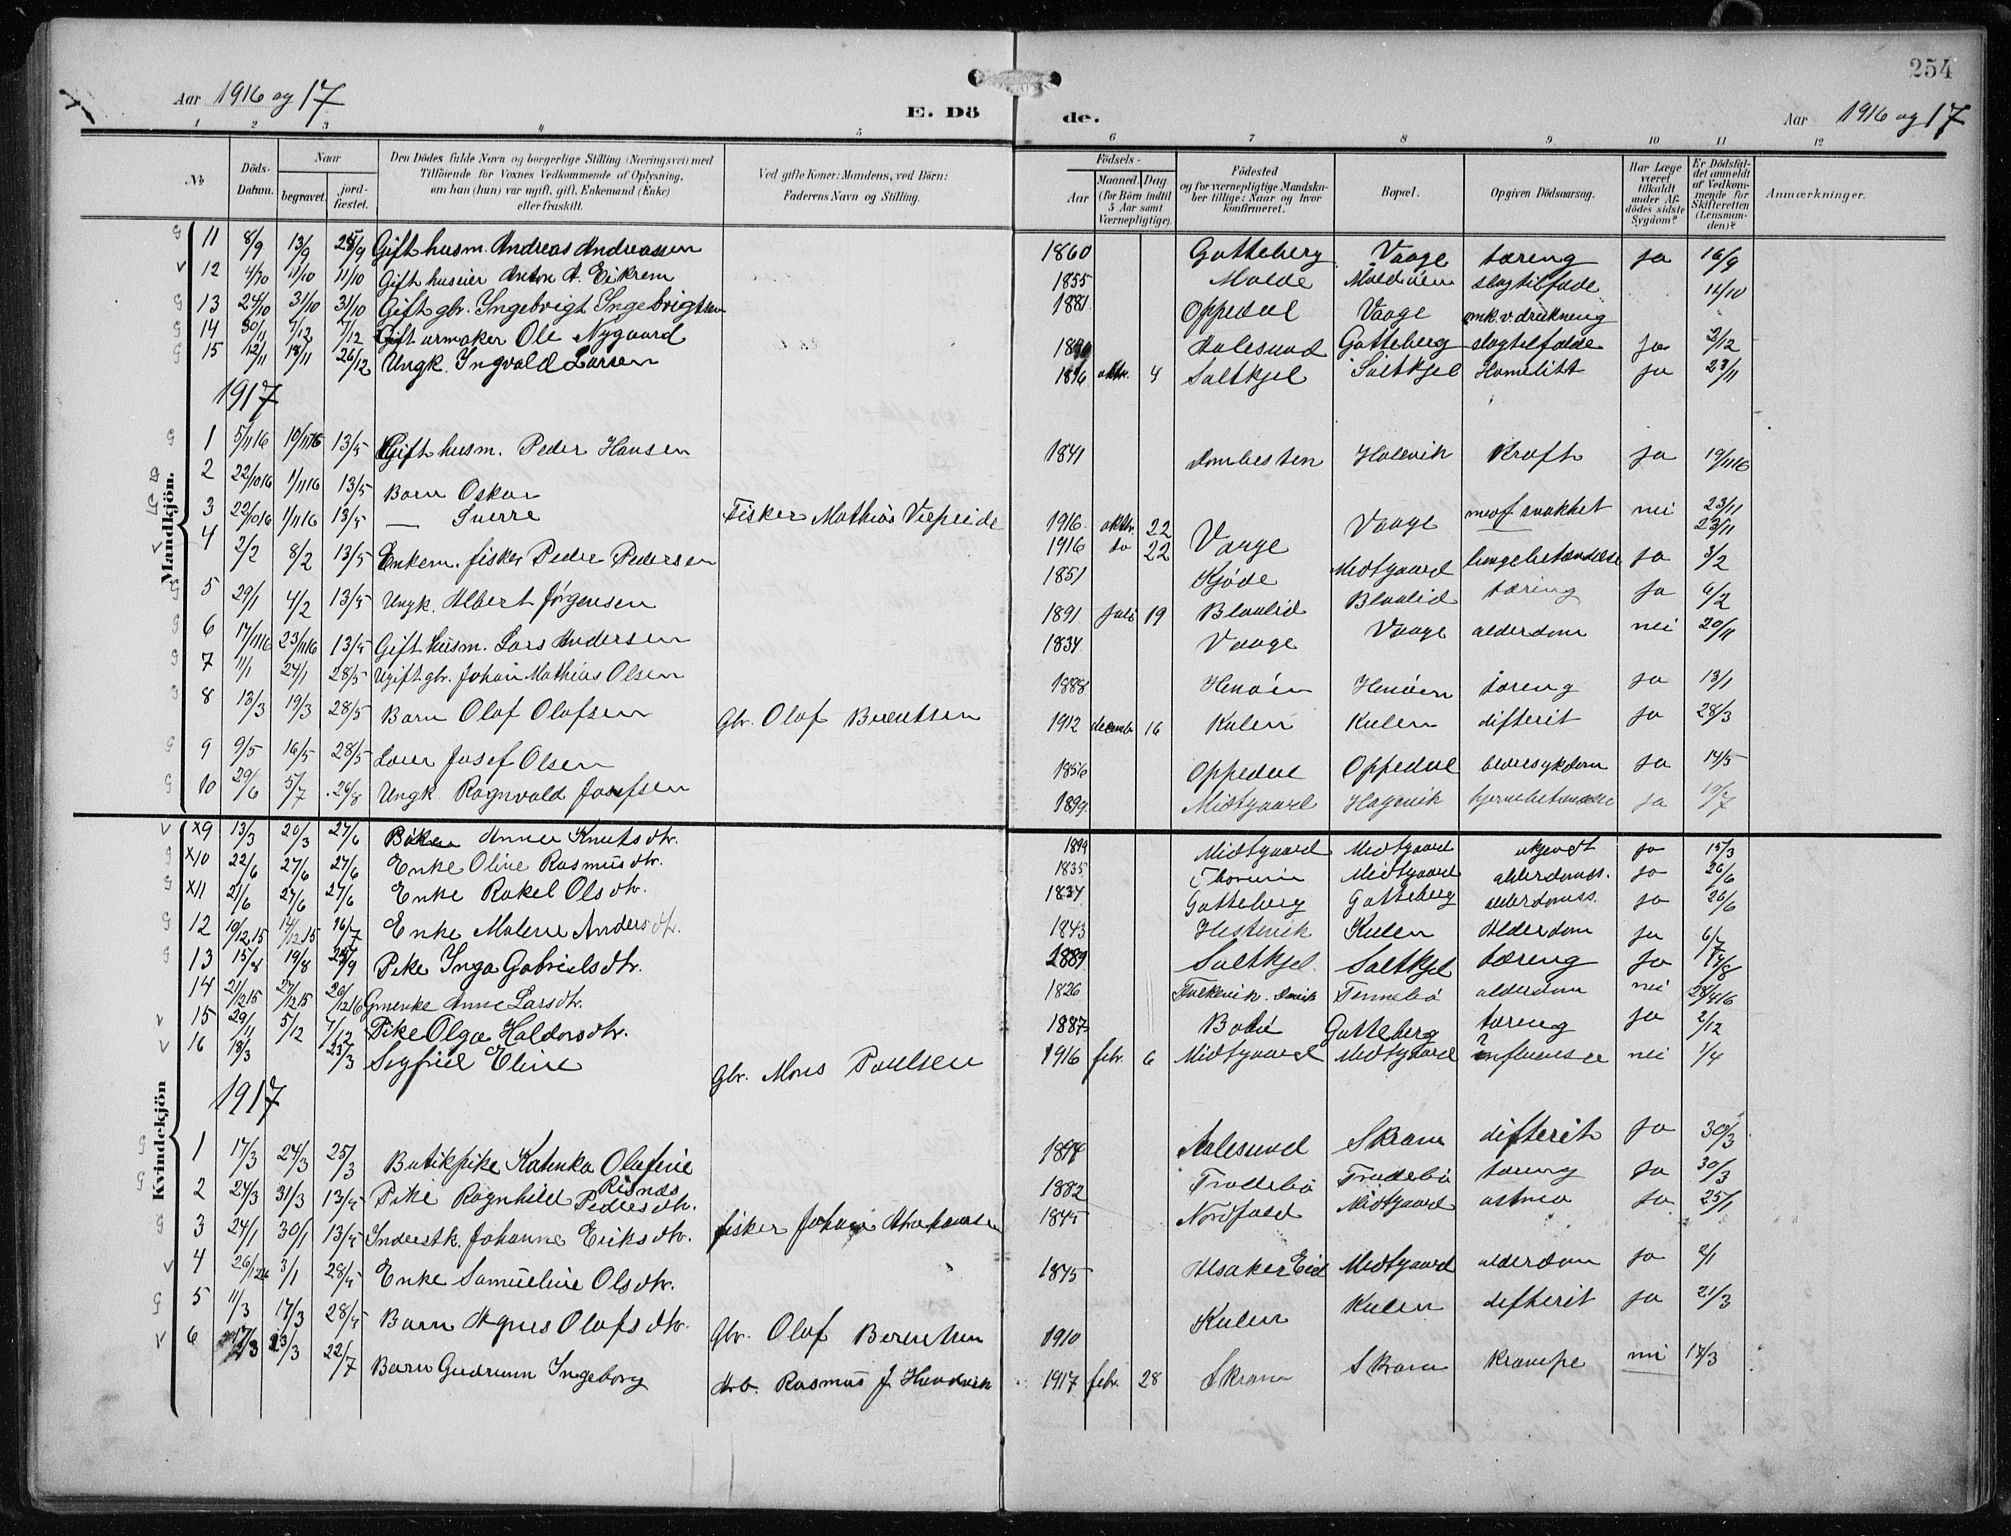 254
Aar 1916 og 17
E. Döde.
Aar 1916 og 17
1 2 3 4 5 6 7 8 9 10 11 12
No.
Döds-Datum.
Naar
begravet.
jordfæstet.
Den Dödes fulde Navn og borgerlige Stilling (Næringsvei) med Tilföiende for Voxnes Vedkommende af Oplysning, om han (hun) var ugift, gift, Enkemand (Enke) eller fraskilt.
Ved gifte Koner: Mandens, ved Börn: Faderens Navn og Stilling.
Födsels-
Aar
Maaned. Dag.
(for Börn indtil 5 Aar samt Værnepligtige).
Födested og for værnepligtige Mandskaber tillige: Naar og hvor konfirmeret.
Bopæl.
Opgiven Dödsaarsag.
Har Læge været tilkaldt under Afdödes sidste Sygdom?
Er Dödsfaldet anmeldt af Vedkommende for Skifteretten (Lensmanden)?
Anmærkninger.
Mandkjön.
11 8/9 13/9 Gift husm. Andreas Andreassen 1860 Gotteberg Vaage tæring ja 16/9
12 4/10 11/10 11/10 Gift huseier Anton A. Eikrem 1855 Molde Moldøen slagtilfælde 14/10
13 24/10 31/10 31/10 Gift gbr. Ingebrigt Ingebrigtsen 1881 Oppedal Vaage v. drukning
14 30/11 7/12 7/12 Gift urmaker Ole Nygaard Aalesund Gotteberg slagtilfælde ja 2/12
15 12/11 18/11 26/12 Ungk. Ingvald Larsen 1896 oktbr. 4 Saltkjel Saltkjel ja 23/11
1917
1 5/11 16 10/11 16 13/5 Gift husm. Peder Hansen 1841 Dombesten Holevik Kræft ja 19/11 16
2 22/10 16 1/11 16 13/5 Barn Oskar 1916 oktbr. 22 Vaage Vaage nei 23/11
3 22/10 16 1/11 16 13/5 — Sverre Fisker Mathias 1916 do 22 23/11
4 2/2 8/2 13/5 Enkem. fisker Peder Pedersen 1851 Kjøde Midtgaard lungebetændelse ja 3/2
5 29/1 4/2 13/5 Ungk. Albert Jørgensen 1891 juli 19 Blaalid Blaalid tæring ja 6/2
6 17/11 16 23/11 16 13/5 Gift husm. Lars Andersen 1834 Vaage Vaage alderdom nei 20/11
7 11/1 24/1 28/5 Ugift gbr. Johan Mathias Olsen 1888 Henøen Henøen tæring ja 13/1
8 13/3 19/3 28/5 Barn Olaf Olafsen Gbr. Olaf Berentsen 1912 decemb. 16 Kulen Kulen difterit ja 28/3
9 9/5 16/5 28/5 Josef Olsen 1856 Oppedal Oppedal ja 14/5
10 29/6 5/7 26/8 Ungk. Ragnvald Josefsen 1899 Midtgaard Hagevik hjernebetændelse ja 10/7
Kvindekjön
x9 13/3 20/3 27/6 Anna Knutsdtr. 1899 Midtgaard Midtgaard ukjendt ja 15/3
x10 22/6 27/6 27/6 Enke Oline Rasmusdtr. 1835 Midtgaard alderdomss. ja 26/6
x11 21/6 27/6 27/6 Enke Rakel Olsdtr. 1834 Gotteberg Gotteberg alderdomss. ja 26/6
12 10/12 15 14/12 15 16/7 Enke Malene Andersdtr. 1843 Hestevik Kulen Alderdom ja 6/7
13 15/8 19/8 Pike Inga Gabrielsdtr. 1889 Saltkjel Saltkjel tæring ja 17/8
14 21/12 15 27/12 15 20/12 16 Anne Larsdtr. 1826 Tennebø alderdom nei
15 29/11 5/12 7/12 Pike Olga Haldorsdtr. 1887 Bodø Gotteberg tæring ja 2/12
16 18/3 25/3 Sigfrid Eline Gbr. Mons Paulsen 1916 febr. 6 Midtgaard Midtgaard ? influensa nei 1/4
1917
1 17/3 24/3 25/3 Butikpike Katinka Olufine Risnæs Aalesund Skram difterit ja 30/3
2 24/3 31/3 13/5 Pike Ragnhild Pedersdtr. 1882 Tradebø Tradebø tæring ja 30/3
3 24/1 30/1 13/5 Inderstk. Johanne Eriksdtr. fisker Johan 1845 Nordfold Midtgaard astma ja 25/1
4 3/1 28/5 Enke Samueline Olsdtr. 1845 Alsaker Eid Midtgaard alderdom ja 2/1
5 11/3 17/3 28/5 Barn Agnes Olafsdtr. Gbr. Olaf Berentsen 1910 Kulen Kulen difterit ja 21/3
6 17/3 23/3 22/7 Barn Gudrun Ingeborg Arb. Rasmus J. 1917 febr. 28 Skram Skram krampe nei 17/3